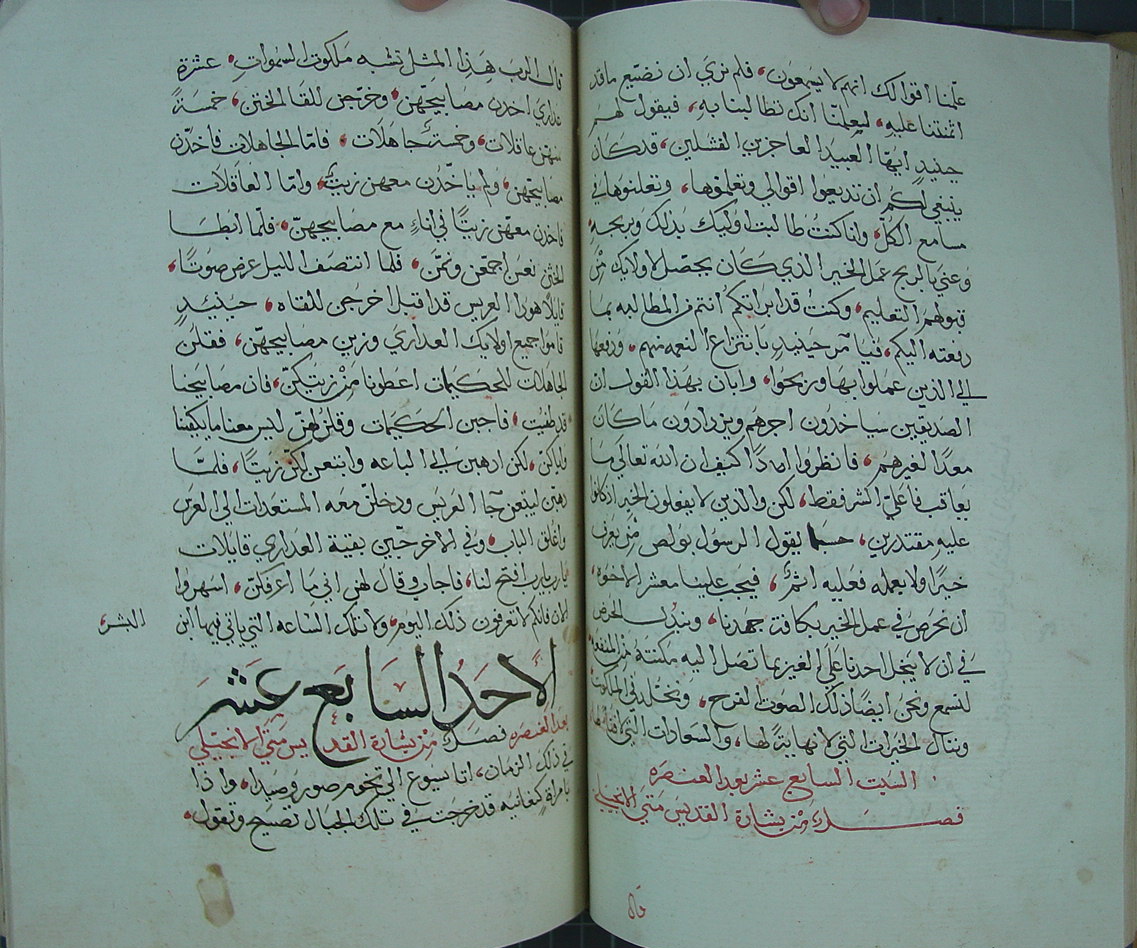 علّمنا اقوالك انهم لا يسمعون، فلم نري ان نضيّع ما قد
ائتمنّا عليهِ، ليعلمنا انك تطالبنا بهِ، فيقول لهم
حينيدٍ ايها العبيد العاجزين الفشلين، قد كان
ينبغي لكم ان تديعوا اقوالي وتعلموها، وتعلنوها في
مسامع الكل، وانا كنت طالبت اوليك بدلك وبربحهِ
وعني بالربح عمل الخير الذي كان يحصل لاولايك من
قبولهم التعليم، وكنت قد ابراتكم انتم من المطالبه بما
دفعته اليكم، فيامر حينيدٍ بانتزاع النعمه منهم، ودفعها
الي الذين عملوا بها وربحوا، وابان بهذا القول ان
الصديقين سياخدون اجرهم ويزدادون ما كان
معدًا لغيرهم، فانظروا امدًا كيف ان الله تعالي ما
يعاقب فاعلي الشر فقط، لكن والدين لا يفعلون الخير اد كانوا
عليهِ مقتدرين، حسبما يقول الرسول بولص من يعرف
خيرًا ولا يعمله فعليه اثمٌ، فيجب علينا معشر الاخوه
ان نحرص في عمل الخير بكافت جهدنا، ونبدل الحرص
في ان لا يبخل احدنا علي الغير بما تصل اليه مكنته من المنفعه
لنسمع ونحن ايضًا ذلك الصوت المفرح، ونخلد في الملكوت
وننال الخيرات التي لا نهاية لها، والسعادات التي لا انقضا لها،
السبت السابع عشر بعد العنصره
فصل من بشارة القديس متي الانجيلي
قال
قال الرب هذا المثل تشبه ملكوت السموات، عشرة
عداري اخدن مصابيحهن، وخرجن للقا الختن، خمسةً
منهن عاقلات، وخمسةً جاهلات، فامّا الجاهلات فاخدن
مصابيحهن، ولم ياخدن معهن زيت، وامّا العاقلات
فاخدن معهن زيتًا في اناءٍ مع مصابيحهنّ، فلمّا ابطا
الختن نعسن اجمعن ونمن، فلما انتصف الليل عرض صوتًا،
قايلًا هودا العريس قد اقبل اخرجن للقاه، حينيدٍ
قاموا جميع اولايك العداري وزين مصابيحهنّ، فقلن
الجاهلات للحكيمات اعطونا من زيتكن، فان مصابيحنا
قد طفيت، فاجبن الحكيمات وقلن لهن ليس معنا ما يكفينا
واياكن، لكن ادهبن الي الباعه وابتعن لكن زيتًا، فلمّا
دهبن ليبتعن جا العريس ودخلن معه المستعدات الي العرس
واغلق الباب، وفي الاخر جين بقية العداري قايلات
يا رب يا رب افتح لنا، فاجاب وقال لهن اني ما اعرفكن، اسهروا
الان فانكم لا تعرفون ذلك اليوم، ولا تلك الساعه التي ياتي فيها ابن
البشر،
الاحد السابع عشر
بعد العنصره فصل من بشارة القديس متي الانجيلي
في ذلك الزمان، اتا يسوع الي تخوم صور وصيدا، واذا
بامراةٍ كنعانيه قد خرجت في تلك الجبال تصيح وتقول،